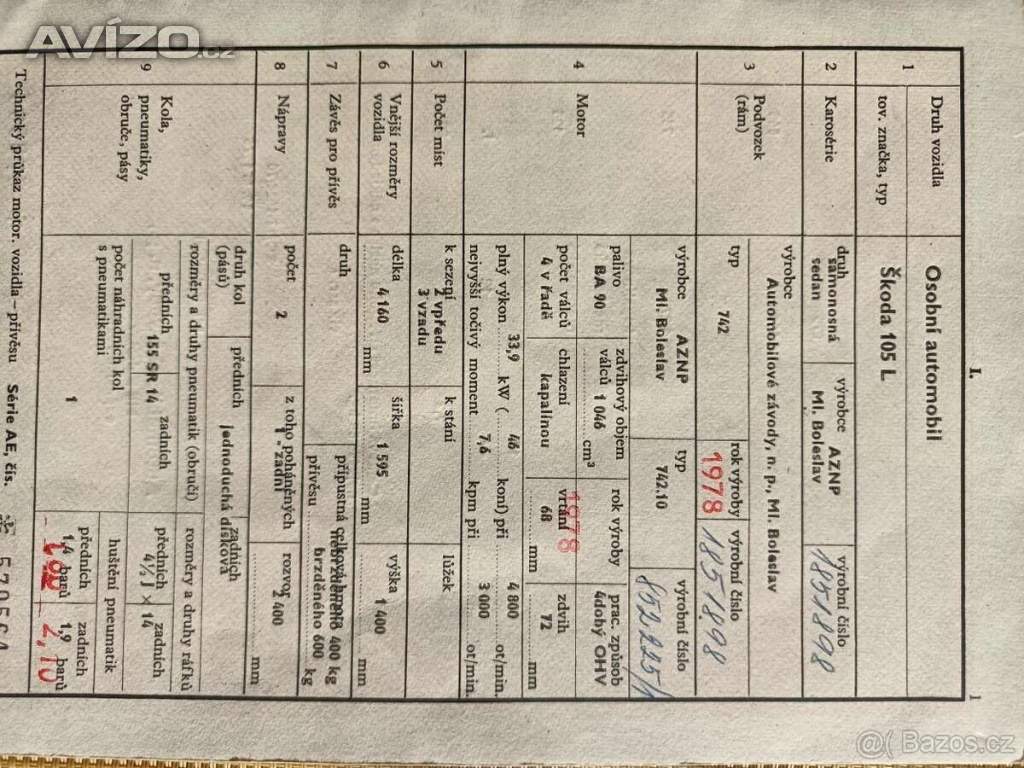 I.
1
1
Druh vozidla
Osobní automobil
tov. značka, typ
Škoda 105 L
2
Karosérie
druh
samonosná
sedan
výrobce
AZNP
Ml. Boleslav
výrobní číslo
1851898
3
Podvozek
(rám)
výrobce
Automobilové závody, n. p., Ml. Boleslav
typ
742
rok výroby
1978
výrobní číslo
1851898
4
Motor
výrobce
AZNP
Ml. Boleslav
typ
742.10
výrobní číslo
palivo
BA 90
zdvihový objem
válců 1 046 cm³
rok výroby
1978
prac. způsob
4dobý OHV
počet válců
4 v řadě
chlazení
kapalinou
vrtání
68 mm
zdvih
72 mm
plný výkon 33,9 kW ( 46 koní) při 4 800 ot/min.
nejvyšší točivý moment 7,6 kpm při 3 000 ot/min.
5
Počet míst
k sezení
2 vpředu
3 vzadu
k stání
lůžek
6
Vnější rozměry
vozidla
délka
4 160 mm
šířka
1 595 mm
výška
1 400 mm
7
Závěs pro přívěs
druh
přípustná celková
přívěsu
nebrzděného 400 kg
brzděného 600 kg
8
Nápravy
počet
2
z toho poháněných
1 - zadní
rozvor
2 400 mm
9
Kola,
pneumatiky,
obruče, pásy
druh kol
(pásů)
předních
jednoduchá disková
zadních
rozměry a druhy pneumatik (obručí)
předních
155 SR 14
zadních
rozměry a druhy ráfků
předních
4½ J × 14
zadních
počet náhradních kol
s pneumatikami
1
huštění pneumatik
předních
1,4 barů
zadních
1,9 barů
2,10
Technický průkaz motor. vozidla – přívěsu Série AE, čís.
AVÍZO.cz
@( Bazos.cz